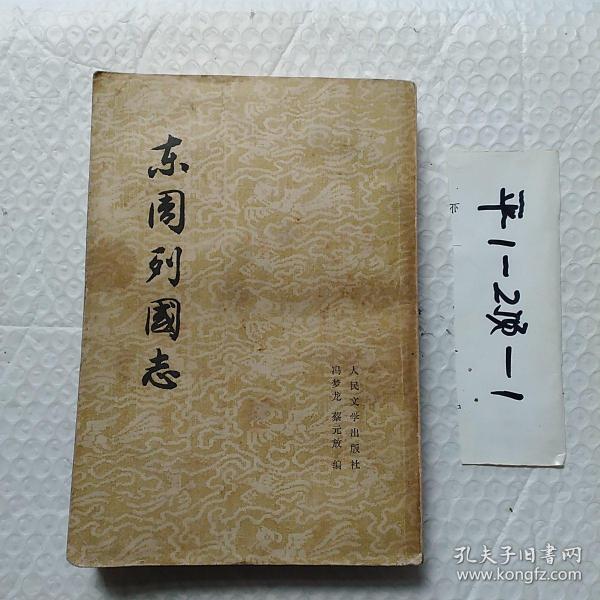 东周列國志
冯梦龙 蔡元放 编
人民文学出版社
平1-2顶-1
孔夫子旧书网
www.kongfz.com